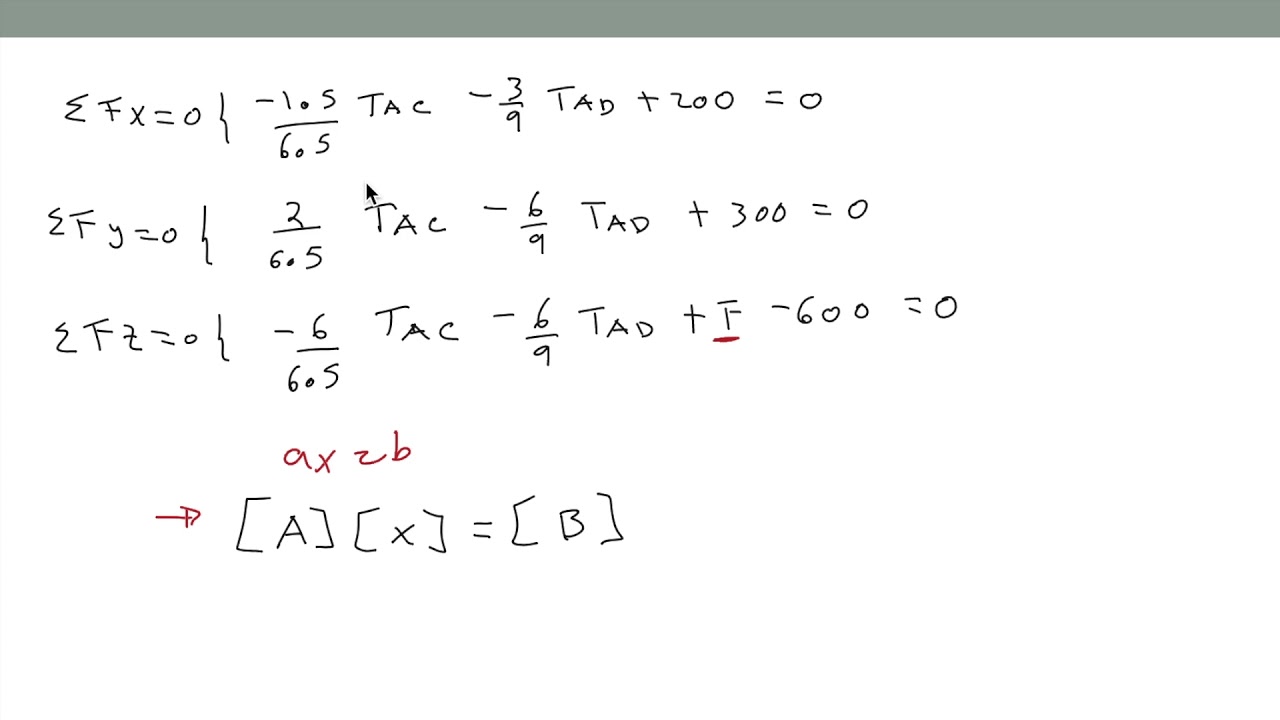 ΣFx=0 { -1.5/6.5 TAC - 3/9 TAD + 200 = 0
ΣFy=0 { 2/6.5 TAC - 6/9 TAD + 300 = 0
ΣFz=0 { -6/6.5 TAC - 6/9 TAD + F - 600 = 0
ax=b
→ [A][x] = [B]